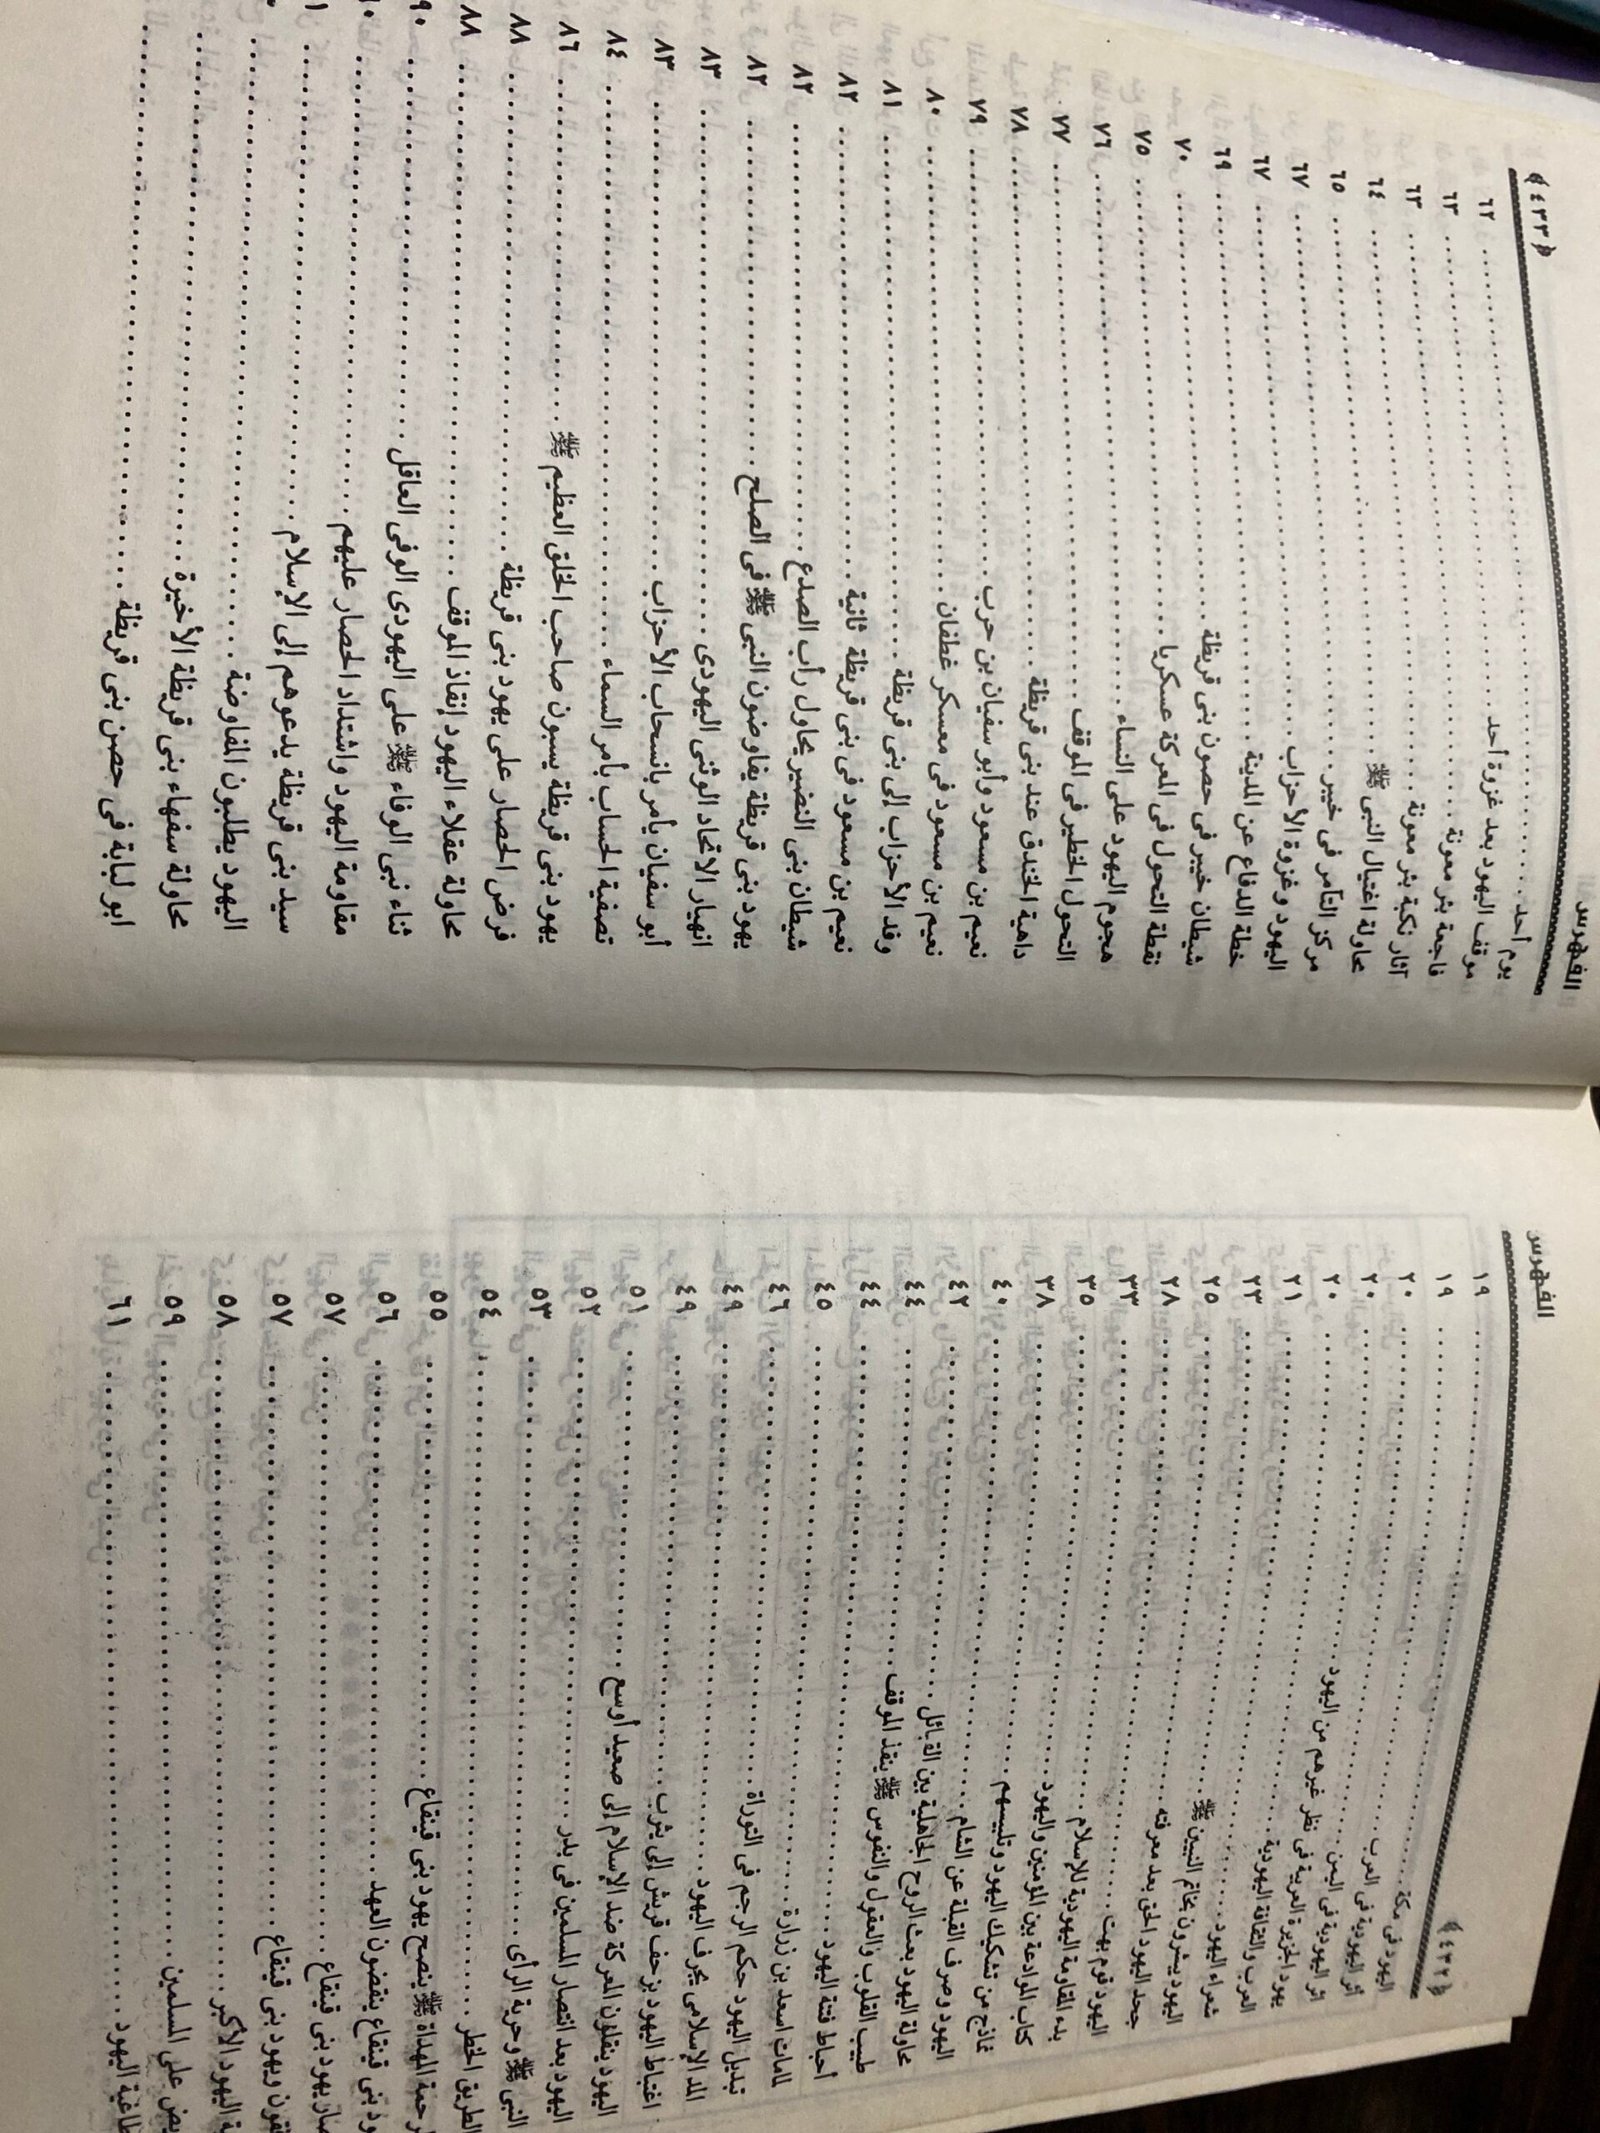 ﴿٤٣٢﴾ الفهرس
اليهود فى مكة ١٩
أثر اليهودية فى العرب ١٩
اثر اليهودية فى اليمن ٢٠
يهود الجزيرة العربية فى نظر غيرهم من اليهود ٢٠
العرب والثقافة اليهودية ٢٠
شعراء اليهود ٢١
اليهود يبشرون بخاتم النبيين ﷺ ٢٣
جحد اليهود الحق بعد معرفته ٢٥
اليهود قوم بهت ٢٨
بدء المقاومة اليهودية للإسلام ٣٣
كتاب الموادعة بين المؤمنين واليهود ٣٥
نماذج من تشكيك اليهود وتلبيسهم ٣٨
اليهود وصرف القبلة عن الشام ٤٠
محاولة اليهود بعث الروح الجاهلية بين القبائل ٤٢
طبيب القلوب والعقول والنفوس ﷺ ينقذ الموقف ٤٤
أحباط فتنة اليهود ٤٤
لمامات اسعد بن زرارة ٤٥
تبديل اليهود حكم الرجم فى التوراة ٤٦
المد الإسلامى يجرف اليهود ٤٩
اغتباط اليهود بزحف قريش إلى يثرب ٤٩
اليهود ينقلون المعركة ضد الإسلام إلى صعيد أوسع ٥١
اليهود بعد انتصار المسلمين فى بدر ٥٢
النبى ﷺ وحرية الرأى ٥٣
الطريق الخطر ٥٤
الرحمة المهداة ﷺ ينصح يهود بنى قينقاع ٥٥
بنى قينقاع ينقضون العهد ٥٦
يهود بنى قينقاع ٥٧
ويهود بنى قينقاع ٥٧
اليهود الأكبر ٥٨
على المسلمين ٥٩
طاغية اليهود ٦١
الفهرس ﴿٤٣٣﴾
يوم أحد ٦٢
موقف اليهود بعد غزوة أحد ٦٣
فاجعة بئر معونة ٦٣
آثار نكبة بئر معونة ٦٤
محاولة اغتيال النبى ﷺ ٦٥
مركز التآمر فى خيبر ٦٧
اليهود وغزوة الأحزاب ٦٧
خطة الدفاع عن المدينة ٦٩
شيطان خيبر فى حصون بنى قريظة ٧٠
نقطة التحول فى المعركة عسكريا ٧٥
هجوم اليهود على النساء ٧٦
التحول الخطير فى الموقف ٧٧
داهية الخندق عند بنى قريظة ٧٨
نعيم بن مسعود وأبو سفيان بن حرب ٧٩
نعيم بن مسعود فى معسكر غطفان ٨٠
وفد الأحزاب إلى بنى قريظة ٨١
نعيم بن مسعود فى بنى قريظة ثانية ٨٢
شيطان بنى النضير يحاول رأب الصدع ٨٢
يهود بنى قريظة يفاوضون النبى ﷺ فى الصلح ٨٢
انهيار الاتحاد الوثنى اليهودى ٨٣
أبو سفيان يأمر بانسحاب الأحزاب ٨٣
تصفية الحساب بأمر السماء ٨٤
يهود بنى قريظة يسبون صاحب الخلق العظيم ﷺ ٨٦
فرض الحصار على يهود بنى قريظة ٨٨
محاولة عقلاء اليهود إنقاذ الموقف ٨٨
ثناء نبى الوفاء ﷺ على اليهودى الوفى العاقل ٩٠
مقاومة اليهود واشتداد الحصار عليهم
سيد بنى قريظة يدعوهم إلى الإسلام
اليهود يطلبون المفاوضة
محاولة سفهاء بنى قريظة الأخيرة
ابو لبابة فى حصن بنى قريظة